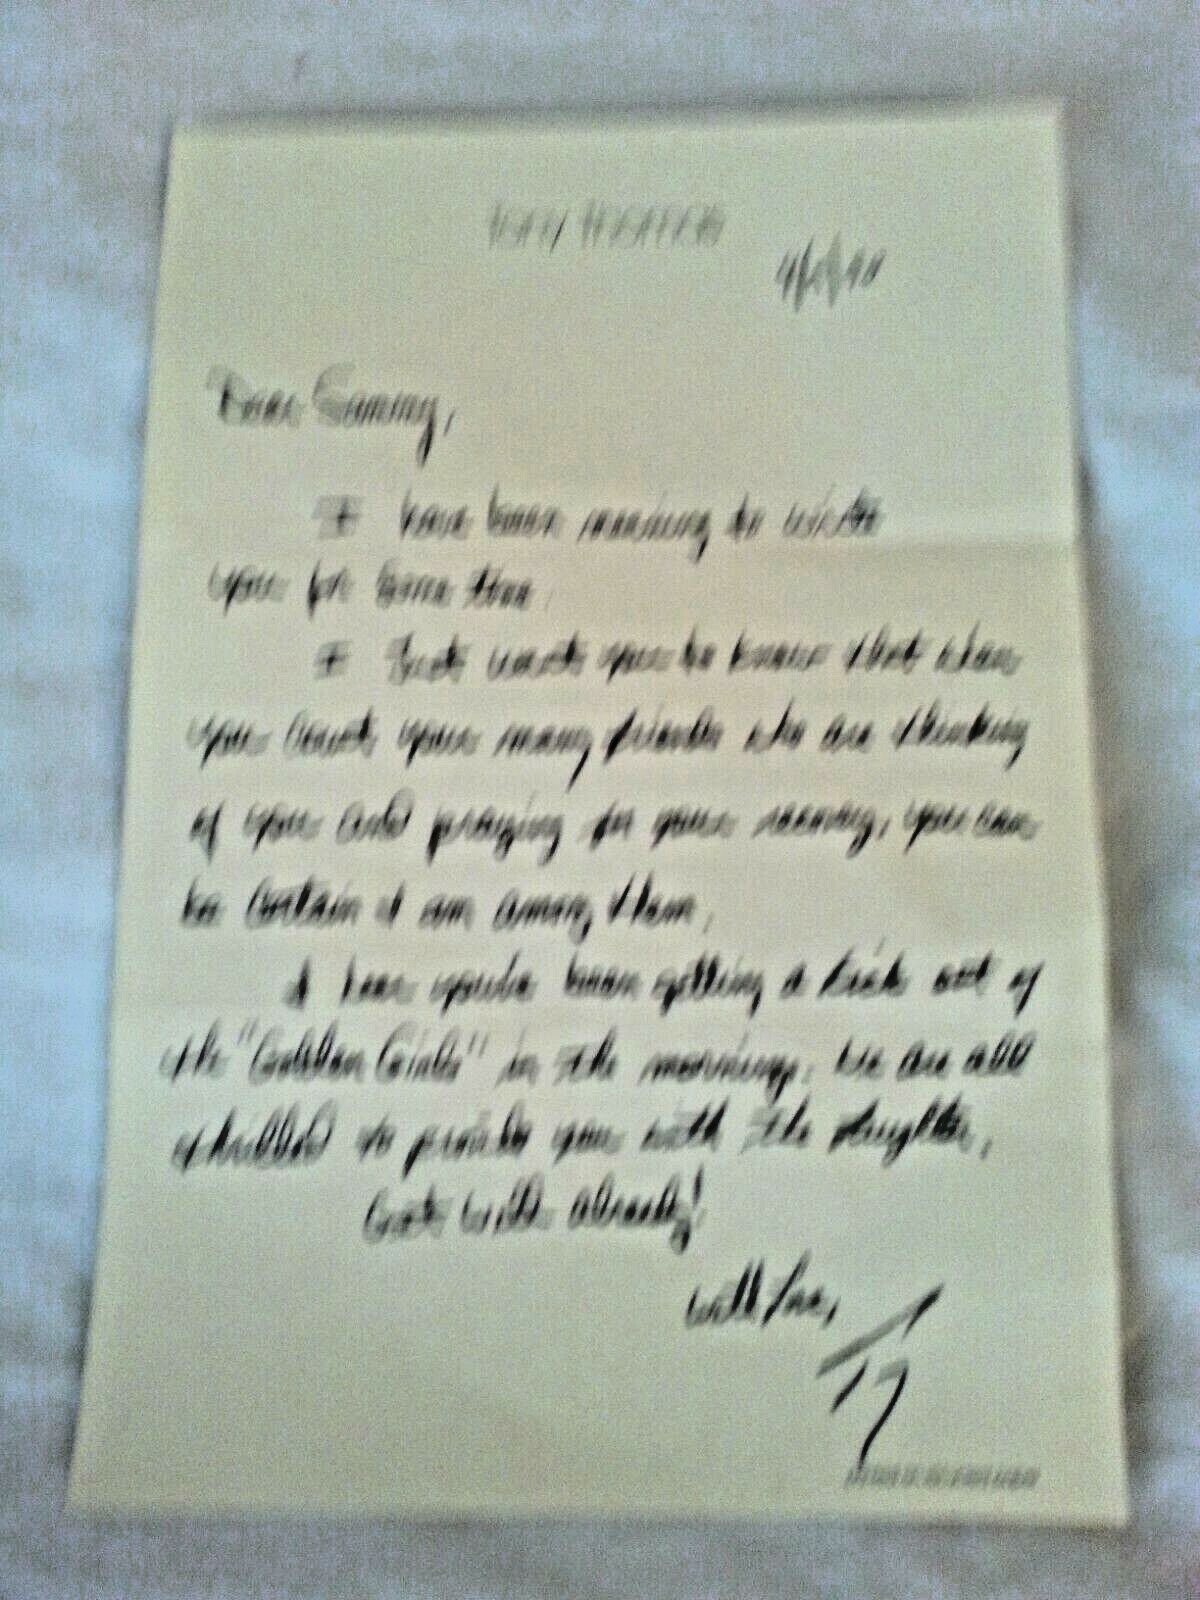 Dear Sammy,
I have been meaning to write
you for some time.
I just want you to know that when
you count your many friends who are thinking
of you and praying for your recovery, you can
be certain I am among them.
I hear you've been getting a kick out of
the "Golden Girls" in the mornings. We are all
thrilled to provide you with the laughter.
Get well already!
With love,